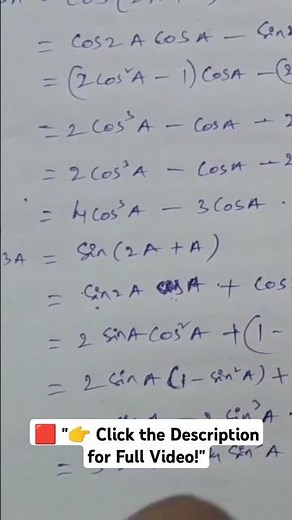 = cos2A cosA - sin2
= (2cos²A - 1) cosA - (2
= 2cos³A - cosA - 2
= 2cos³A - cosA - 2
= 4cos³A - 3cosA .
3A = sin(2A + A)
= sin2A cosA + cos
= 2 sinA cos²A + (1 -
= 2 sinA (1 - sin²A) +
sin³A
🟥 "👉 Click the Description
for Full Video!"
= sin³A